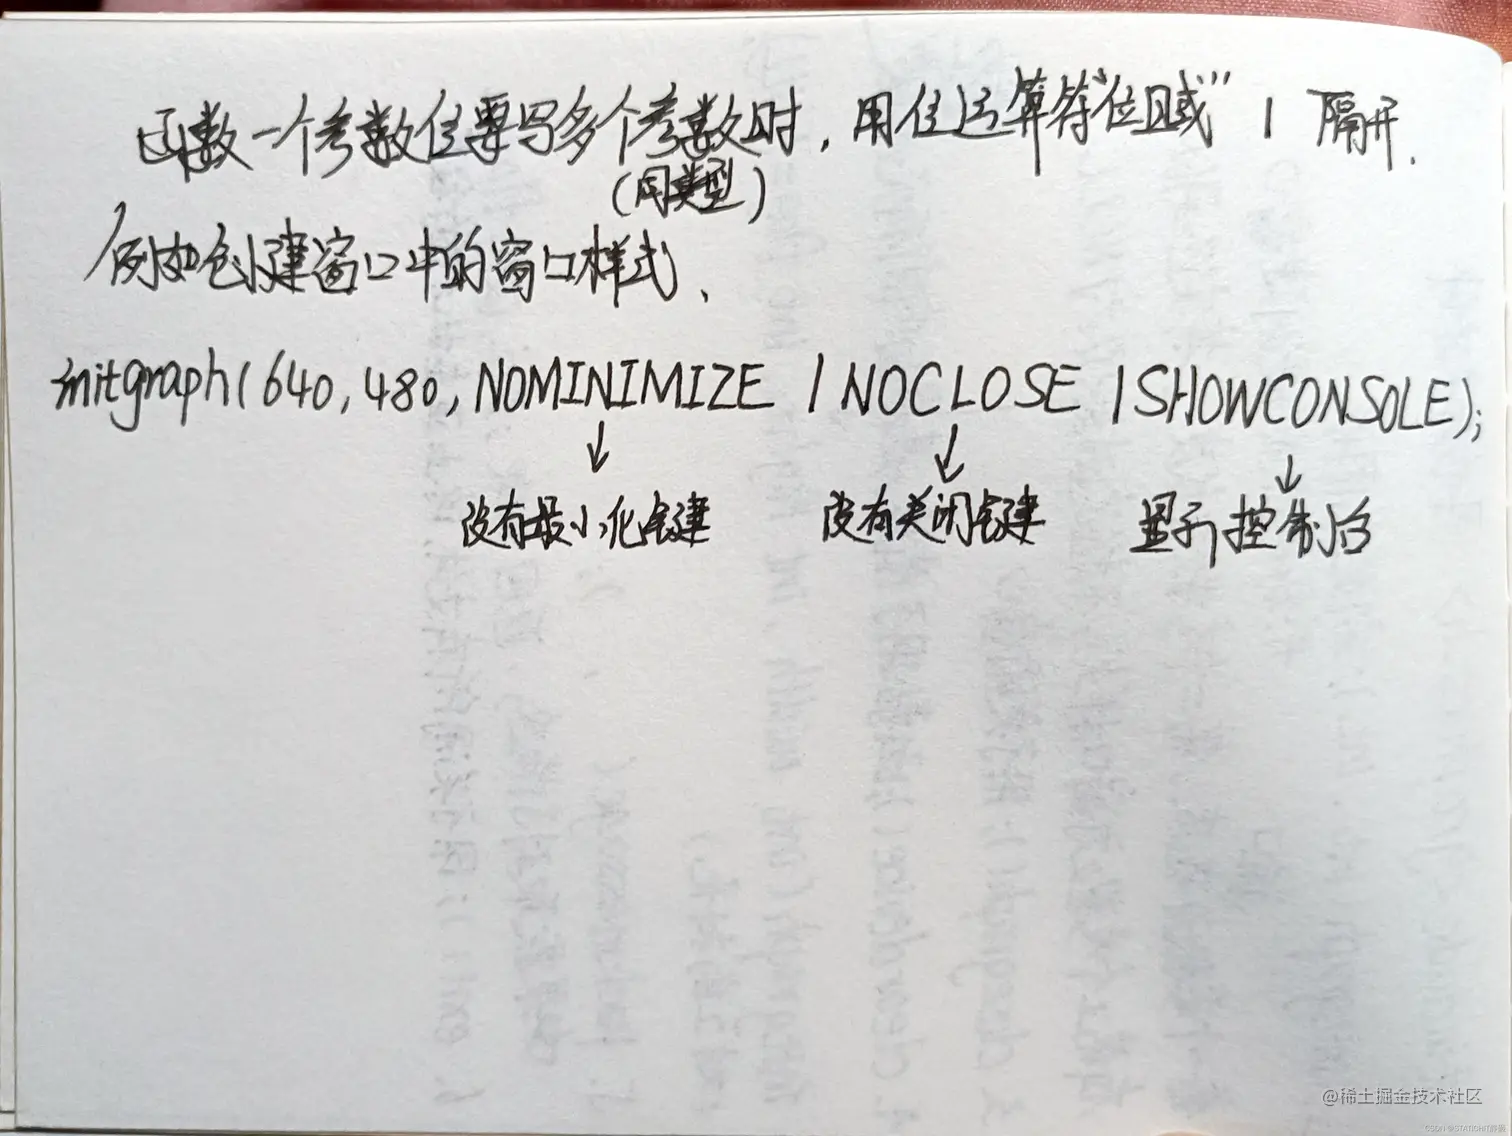 函数一个参数位要写多个参数时，用位运算符“位或” | 隔开.
(同类型)
例如创建窗口中的窗口样式、
initgraph(640,480,NOMINIMIZE | NOCLOSE | SHOWCONSOLE);
没有最小化键 没有关闭键 显示控制台
@稀土掘金技术社区